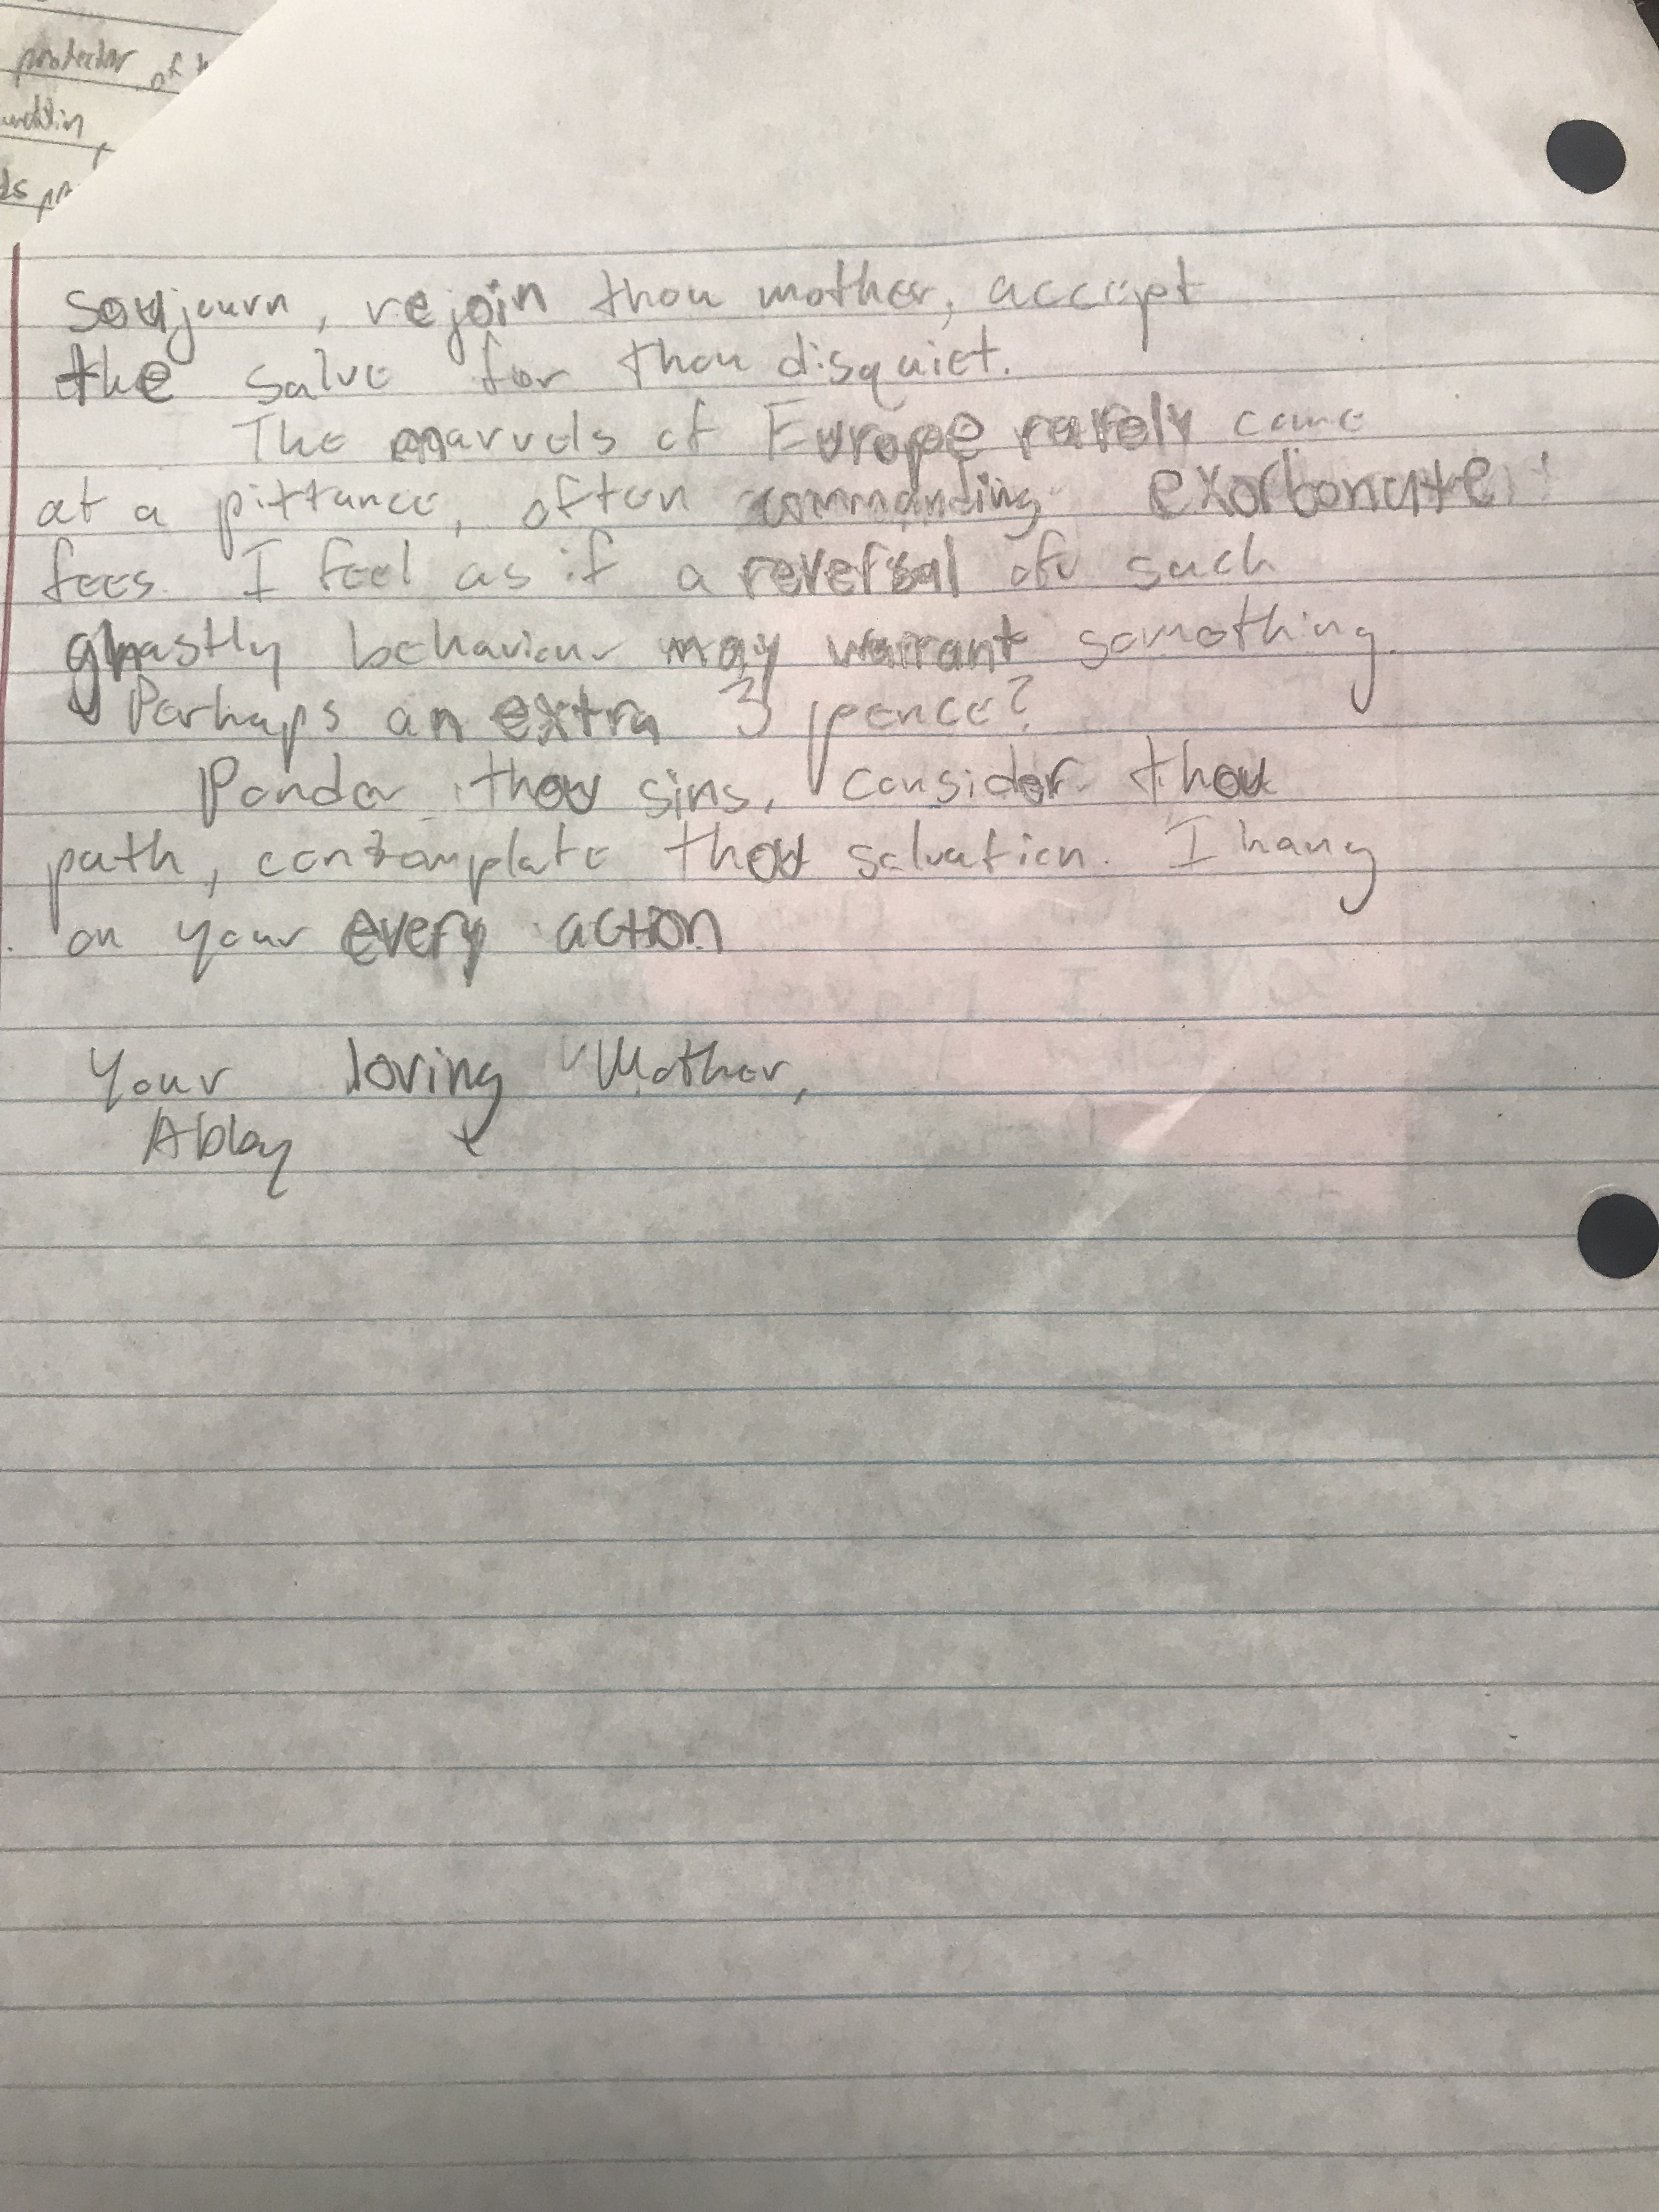 protector of
soujourn, rejoin thou mother, accept
the salve for thou disquiet.
The marvels of Europe rarely come
at a pittance, often commanding exorbonate
fees. I feel as if a reversal of such
ghastly behaviour may warrant something.
Perhaps an extra 3 pence?
Ponder thou sins, consider thou
path, contemplate thou salvation. I hang
on your every action
Your loving Mother,
Abby